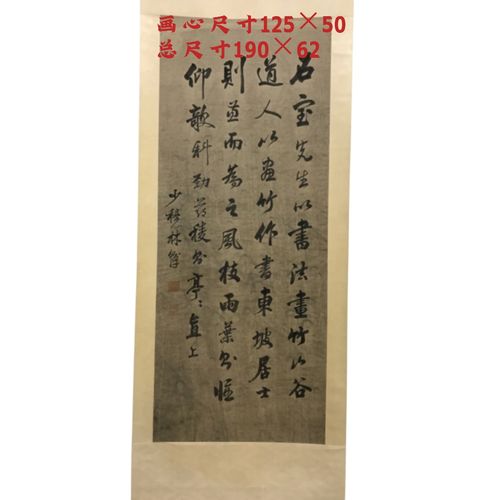 画心尺寸125×50
总尺寸190×62
石室先生以書法畫竹山谷
道人以畫竹作書東坡居士
則兼而為之風枝雨葉以偃
仰欹斜勁節稜以亭〻直上
少穆林